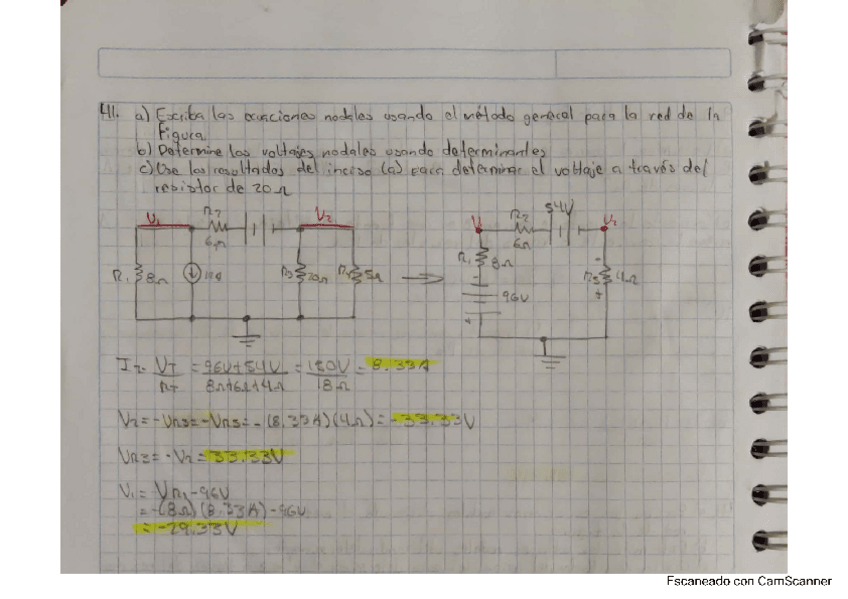 41. a) Escriba las ecuaciones nodales usando el método general para la red de la
Figura
b) Determine los voltajes nodales usando determinantes
c) Use los resultados del inciso (a) para determinar el voltaje a través del
resistor de 20Ω
V₁ R₂ V₂
6Ω
R₁ 8Ω 20Ω 5Ω
R₂ 54V V₂
6Ω
R₁ 8Ω
96V
4Ω
= 96V+54V = 150V = 8.33A
8Ω+6Ω+4Ω 18Ω
V₂ = = -(8.33A)(4Ω) = -33.33V
VR3 = -V₂ = 33.33V
V₁ = VR₁ - 96V
= (8Ω)(8.33A) - 96V
= -29.33V
Escaneado con CamScanner